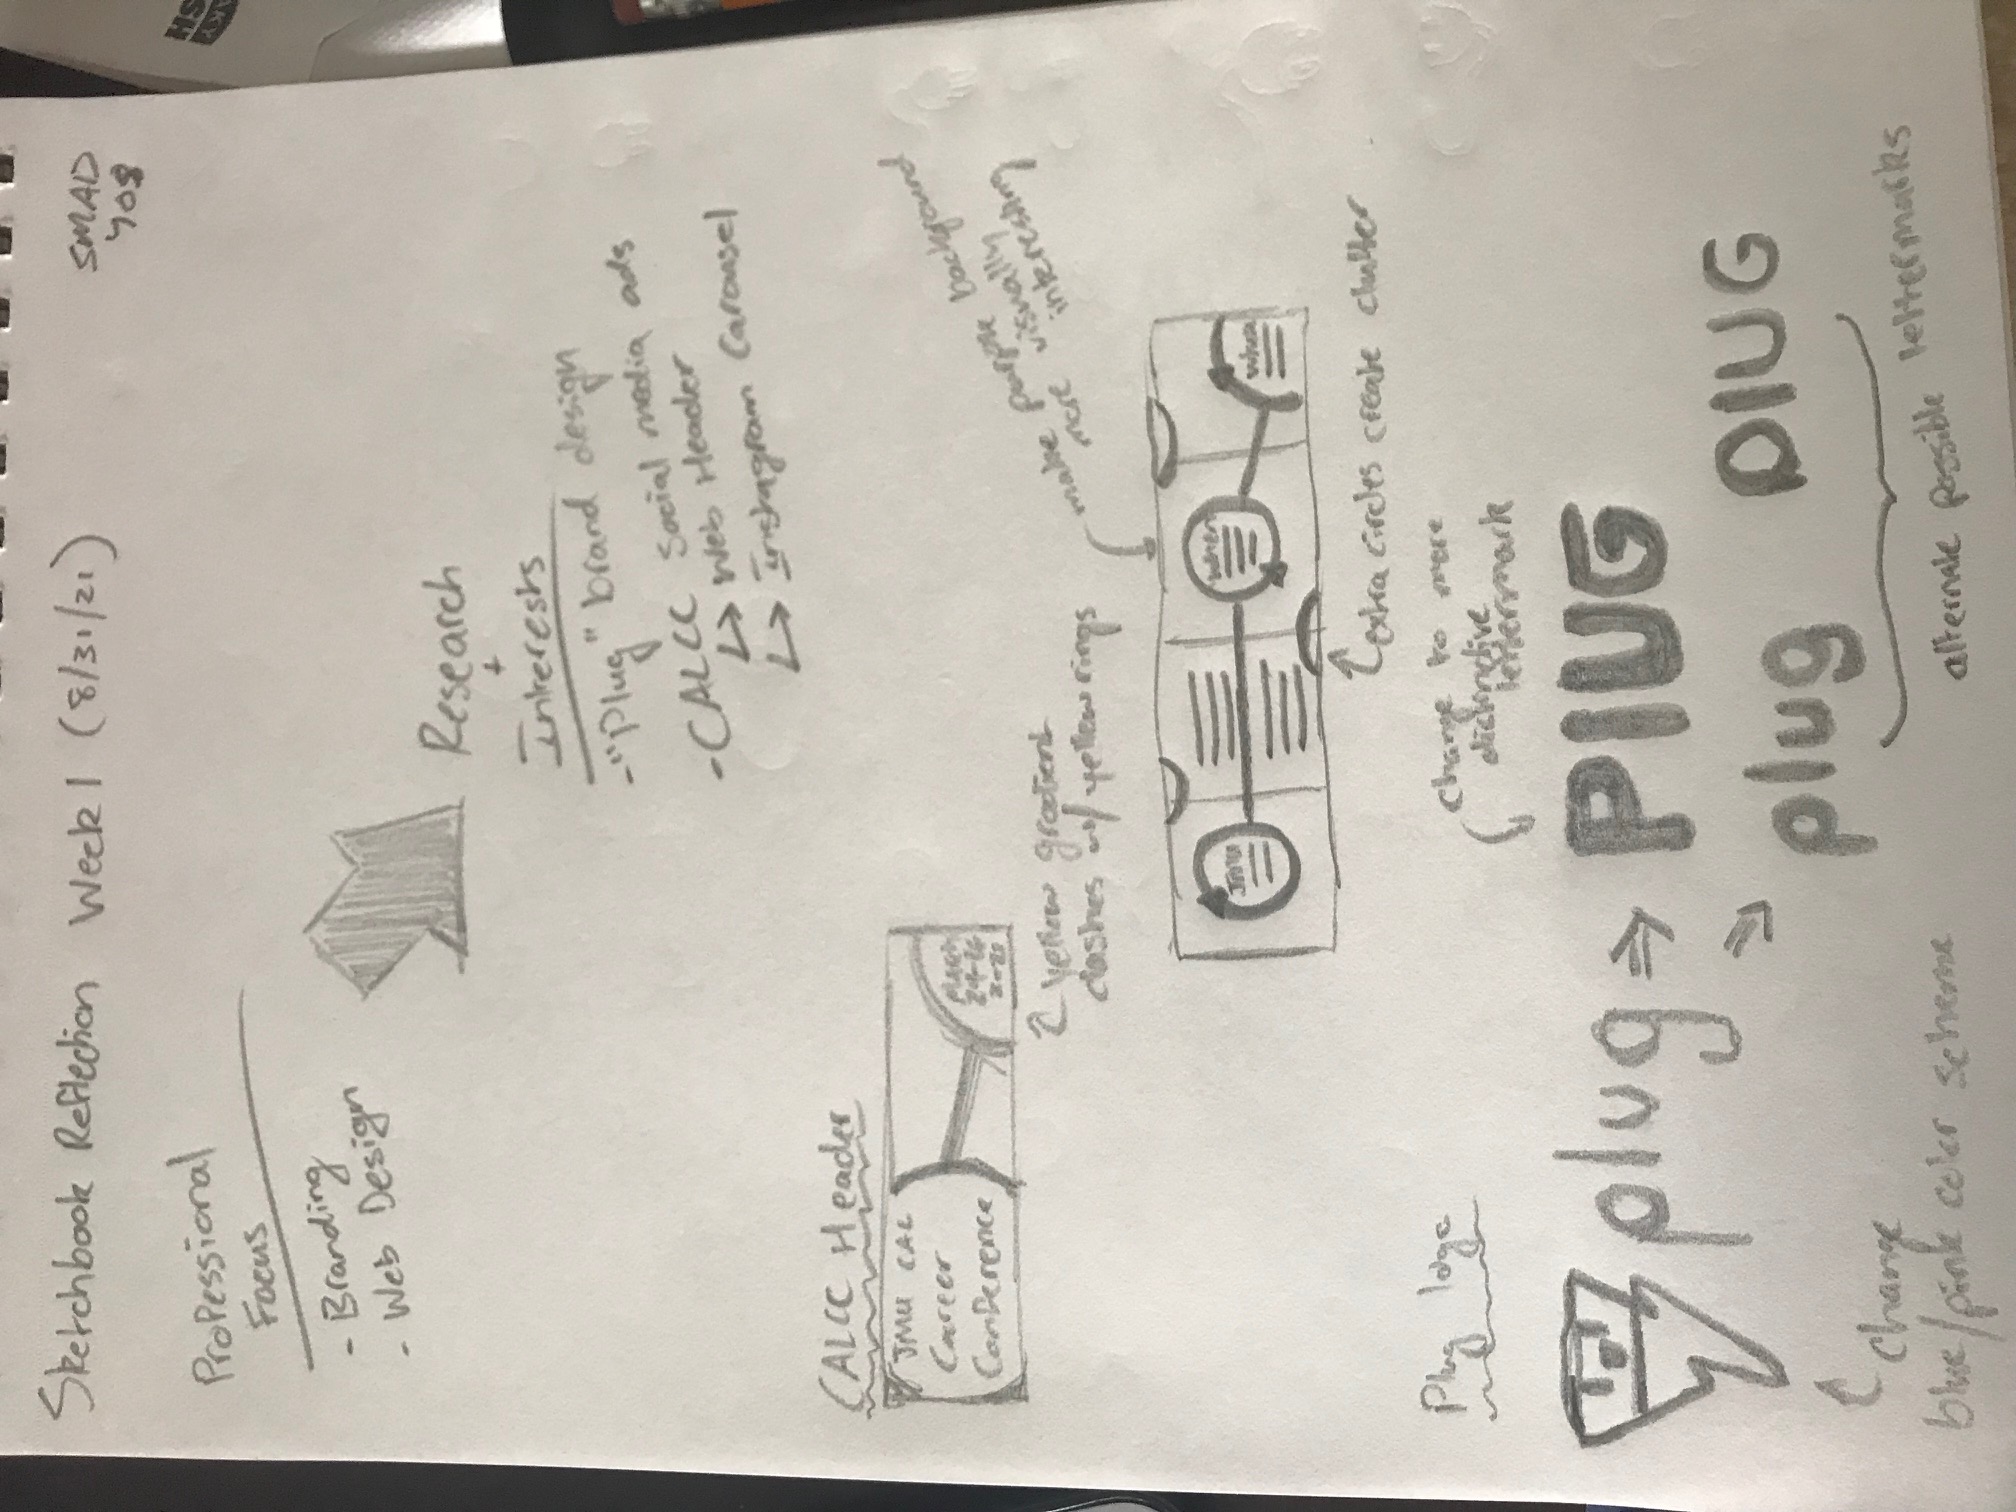 Sketchbook Reflection Week 1 (8/31/21)
SMAD
408
Professional
Focus
- Branding
- Web Design
Research
+
Interests
- "Plug" brand design
- CALCC Social media ads
↳ Web Header
↳ Instagram Carousel
CALCC Header
JMU CAL
Career
Conference
March
yellow gradient
clashes w/ yellow rings
make purple background
more visually
interesting
JMU
When
Where
extra circles create clutter
Plug logo
Change to more
distinctive
lettermark
plug
PlUG
plug
DIUG
Change
blue/pink color scheme
alternate possible lettermarks